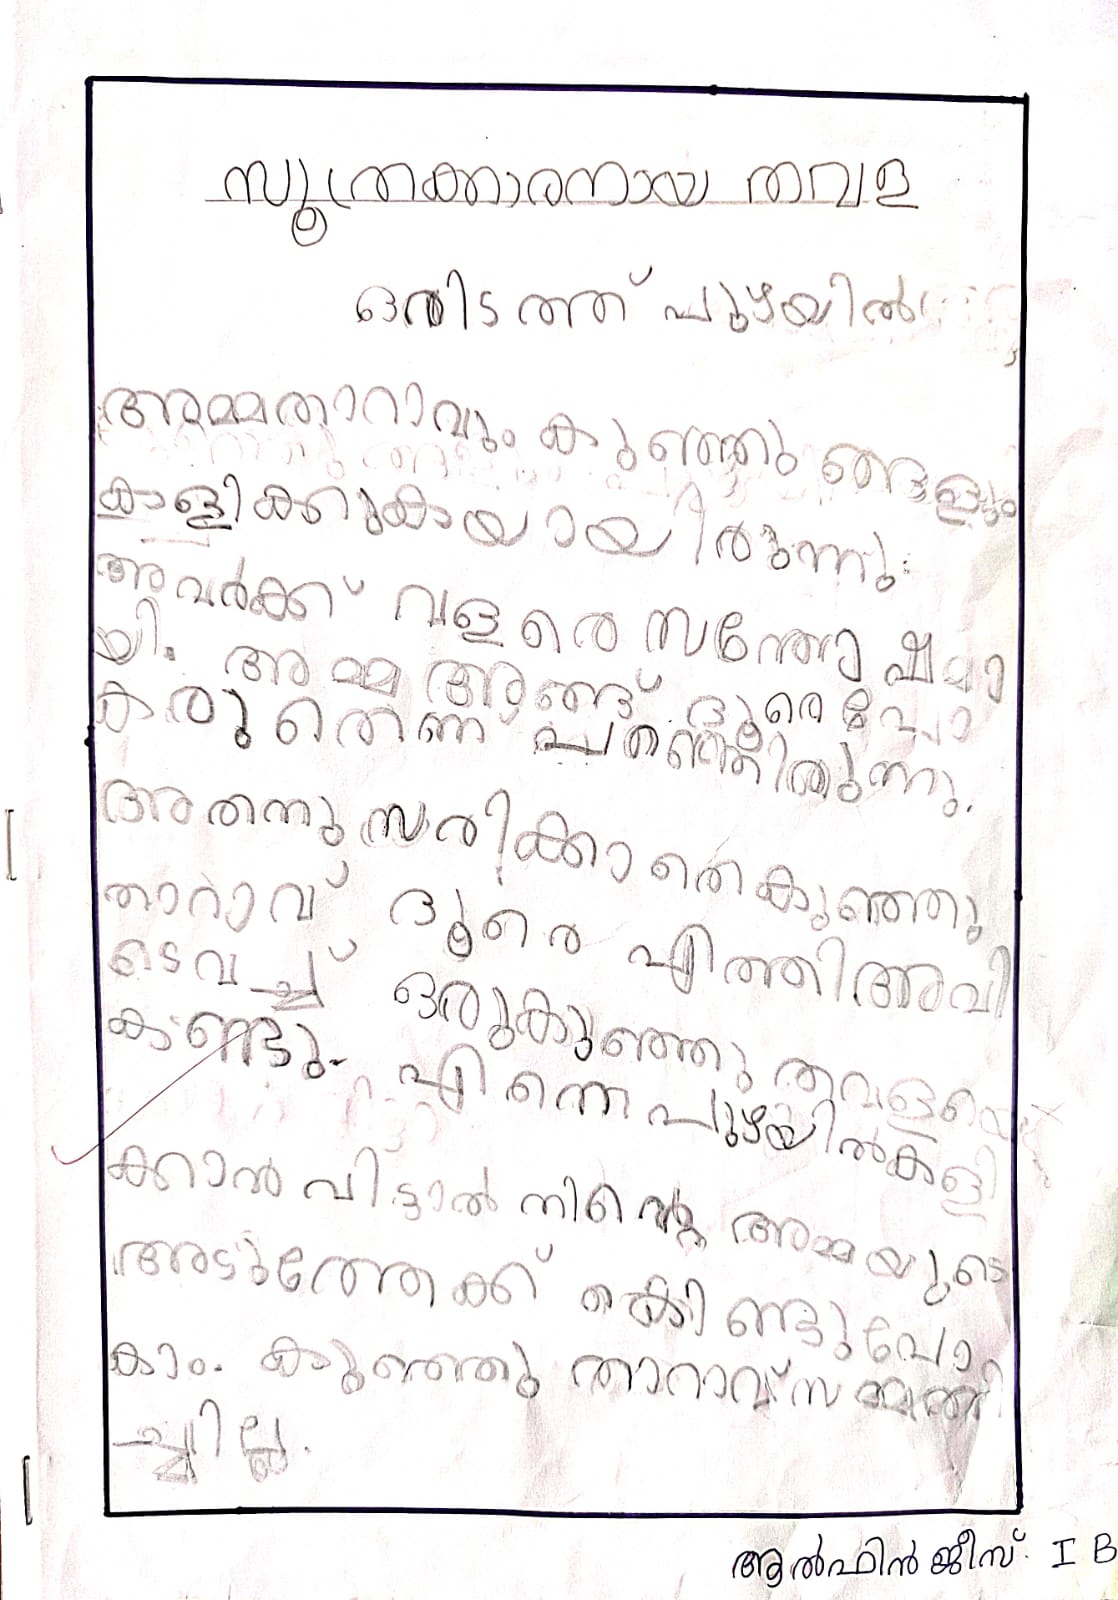 സൂത്രക്കാരനായ തവള
ഒരിടത്ത് പുഴയിൽ
അമ്മതാറാവും കുഞ്ഞു ങ്ങളും
കളിക്കുകയായിരുന്നു.
അവർക്ക് വളരെ സന്തോഷമാ
യി. അമ്മ അങ്ങ് ദൂരെ പോ
കരുതെന്ന് പറഞ്ഞിരുന്നു.
അതനുസരിക്കാതെ കുഞ്ഞു
താറാവ് ദൂരെ എത്തി അവി
ടെവച്ച് ഒരു കുഞ്ഞു തവളയെ
കണ്ടു. എന്നെ പുഴയിൽ കളി
ക്കാൻ വിട്ടാൽ നിന്റെ അമ്മയുടെ
അടുത്തേക്ക് കൊണ്ടുപോ
കാം. കുഞ്ഞു താറാവ് സമ്മതി
ച്ചില്ല.
ആൽഫിൻ ജീസ്. I B